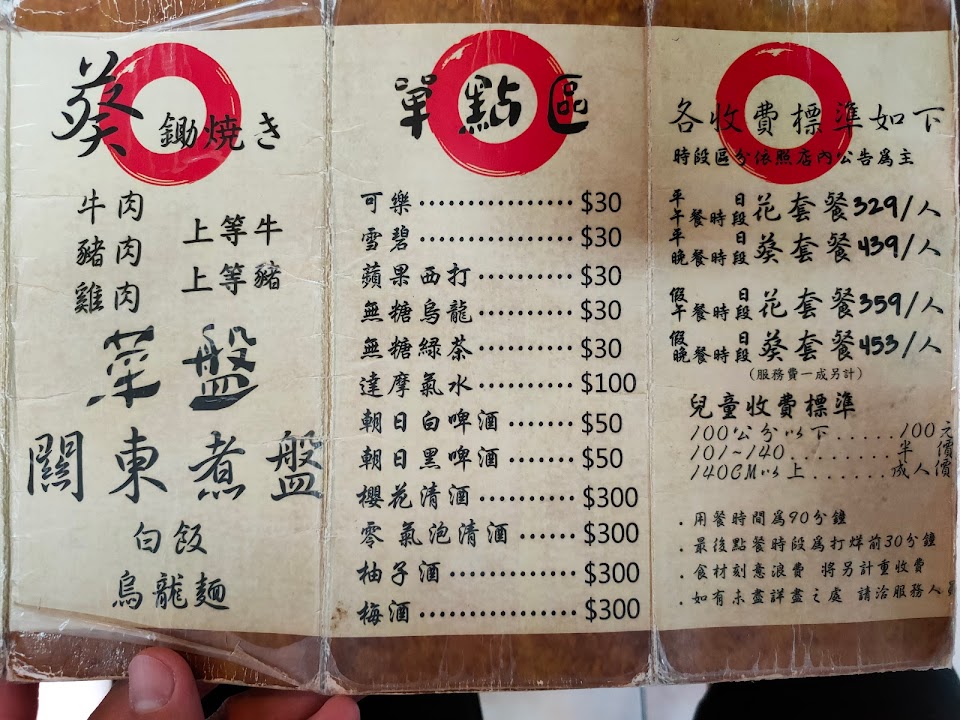 葵 鋤焼き
牛肉
豬肉
雞肉
上等牛
上等豬
菜盤
關東煮盤
白飯
烏龍麵
單點區
可樂 $30
雪碧 $30
蘋果西打 $30
無糖烏龍 $30
無糖綠茶 $30
達摩氣水 $100
朝日白啤酒 $50
朝日黑啤酒 $50
櫻花清酒 $300
零氣泡清酒 $300
柚子酒 $300
梅酒 $300
各收費標準如下
時段區分依照店內公告為主
平日午餐時段花套餐329/人
平日晚餐時段葵套餐439/人
假日午餐時段花套餐359/人
假日晚餐時段葵套餐453/人
(服務費一成另計)
兒童收費標準
100公分以下......100元
101~140.........半價
140CM以上.......成人價
.用餐時間為90分鐘
.最後點餐時段為打烊前30分鐘
.食材刻意浪費 將另計重收費
.如有未盡詳盡之處 請洽服務人員